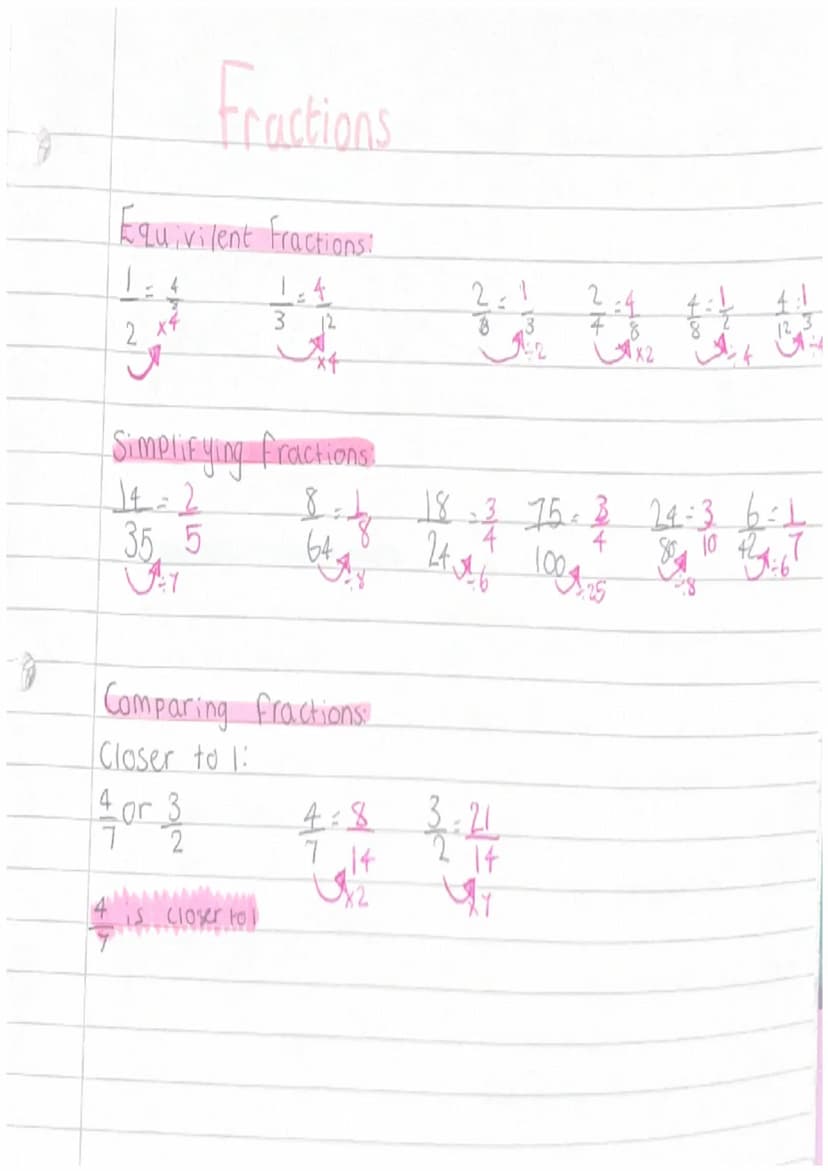 Fractions
Equivilent Fractions:
1/2 = 4/8 x4 1/3 = 4/12 x4 2/6 = 1/3 ÷2 2/4 = 4/8 x2 4/8 = 1/2 ÷4 4/12 = 1/3 ÷4
Simplifying fractions:
14/35 = 2/5 ÷7 8/64 = 1/8 ÷8 18/24 = 3/4 ÷6 75/100 = 3/4 ÷25 24/80 = 3/10 ÷8 6/42 = 1/7 ÷6
Comparing fractions:
Closer to 1:
4/7 or 3/2 4/7 = 8/14 x2 3/2 = 21/14 x7
4/7 is closer to 1